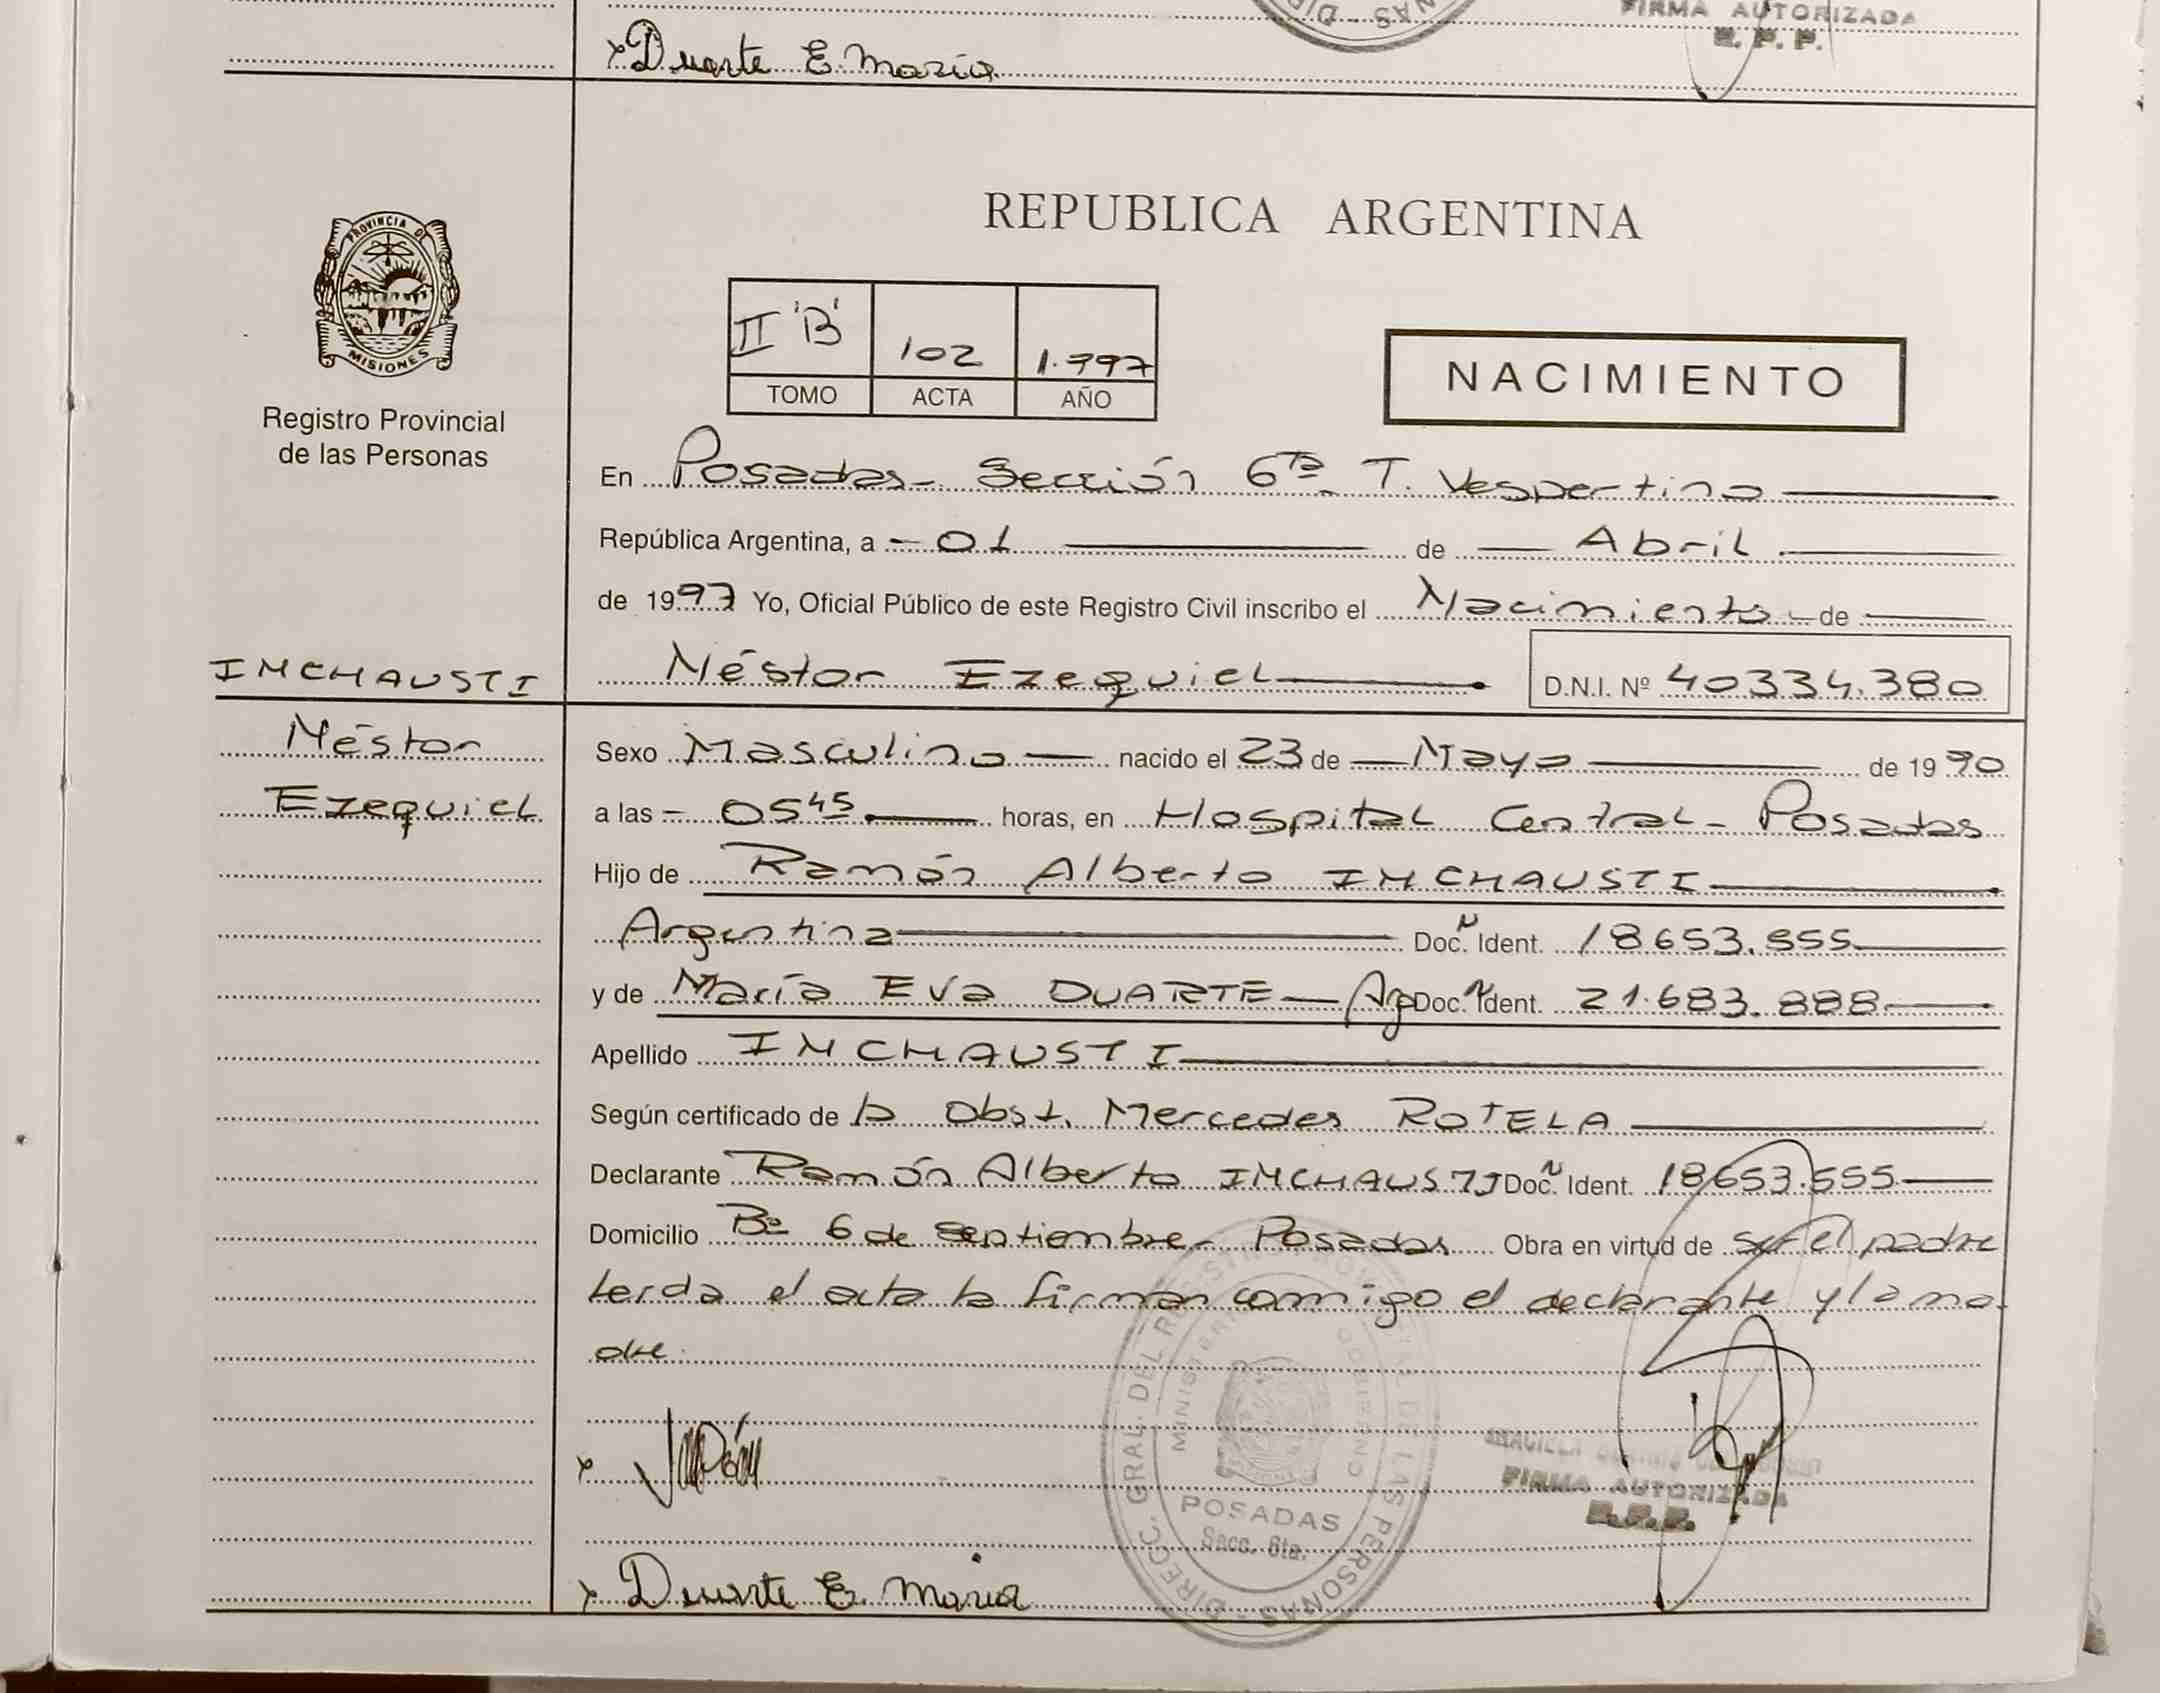 FIRMA AUTORIZADA
R. P. P.
x Duarte E. Maria
PROVINCIA DE
MISIONES
Registro Provincial
de las Personas
REPUBLICA ARGENTINA
II 'B' 102 1.997
TOMO ACTA AÑO
NACIMIENTO
En Posadas - Sección 6ta T. Vespertino
República Argentina, a - 01 de Abril
de 1997 Yo, Oficial Público de este Registro Civil inscribo el Nacimiento - de
INCHAUSTI Néstor Ezequiel D.N.I. Nº 40334.380
Néstor
Sexo Masculino nacido el 23 de Mayo de 1990
Ezequiel
a las - 05 45 horas, en Hospital Central - Posadas
Hijo de Ramón Alberto INCHAUSTI
Argentina Doc. N Ident. 18653.555
y de María Eva DUARTE - Arg Doc. N Ident. 21.683.888
Apellido INCHAUSTI
Según certificado de la Obst. Mercedes ROTELA
Declarante Ramón Alberto INCHAUSTI Doc. N Ident. 18653.555
Domicilio Bº 6 de Septiembre - Posadas Obra en virtud de ser el padre
Leída el acta la firman conmigo el declarante y la ma-
dre.
DIRECC. GRAL. DEL REGISTRO PROVINCIAL DE LAS PERSONAS
MINISTERIO GOBIERNO
POSADAS
Secc. 6ta.
FIRMA AUTORIZADA
R.P.P.
x Duarte E. Maria